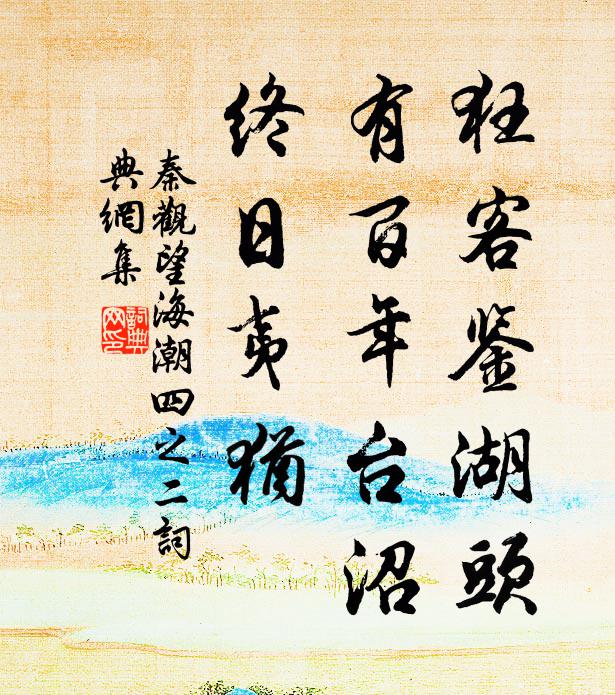 狂客鉴湖頭
有百年台沼
終日夷猶
秦觀望海潮四之二詞
典網集
詞典网印